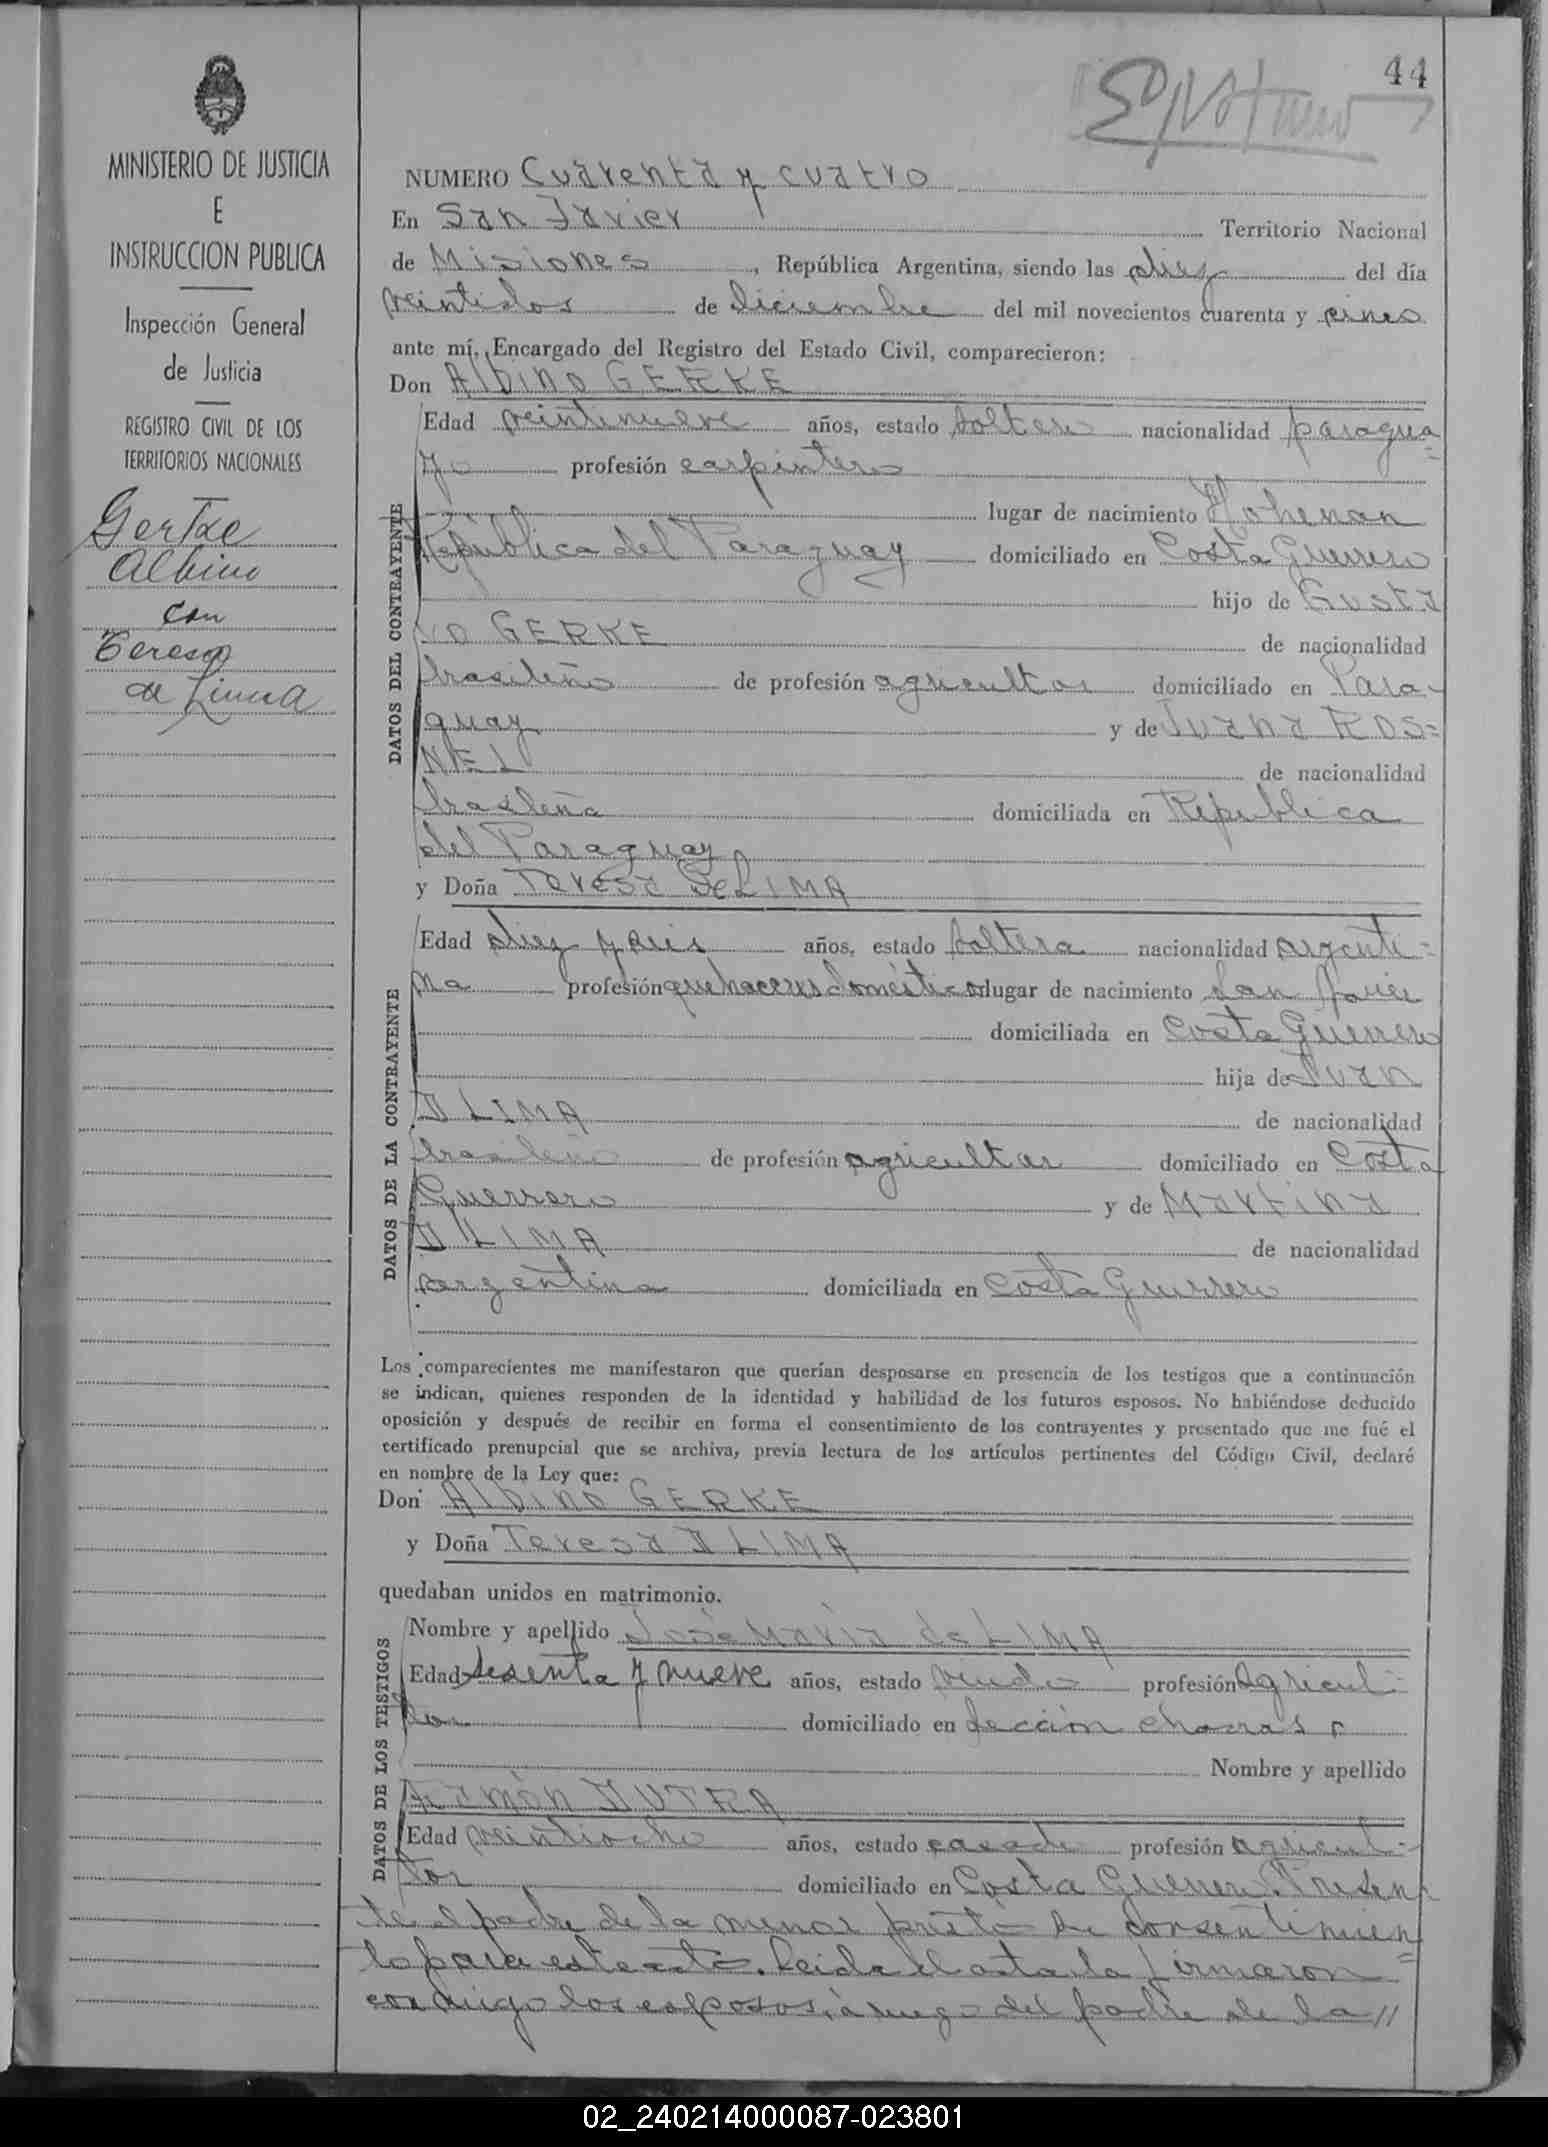 44
MINISTERIO DE JUSTICIA
E
INSTRUCCION PUBLICA
Inspección General
de Justicia
REGISTRO CIVIL DE LOS
TERRITORIOS NACIONALES
Gertke
Albino
con
Teresa
de Lima
NUMERO Cuarenta y cuatro
En San Javier Territorio Nacional
de Misiones, República Argentina, siendo las diez del día
veintidos de diciembre del mil novecientos cuarenta y cinco
ante mí, Encargado del Registro del Estado Civil, comparecieron:
Don Albino GERKE
DATOS DEL CONTRAYENTE
Edad veintinueve años, estado soltero nacionalidad paragua=
yo profesión carpintero
lugar de nacimiento Hohenau
República del Paraguay domiciliado en Costa Guerrero
hijo de Gusta
vo GERKE de nacionalidad
brasileño de profesión agricultor domiciliado en Para-
guay y de Juana ROS=
NEL de nacionalidad
brasileña domiciliada en República
del Paraguay
y Doña Teresa De LIMA
DATOS DE LA CONTRAYENTE
Edad diez y seis años, estado soltera nacionalidad argenti=
na profesión quehaceres domésticos lugar de nacimiento San Javier
domiciliada en Costa Guerrero
hija de Juan
D LIMA de nacionalidad
brasileño de profesión agricultor domiciliado en Costa
Guerrero y de Martina
D LIMA de nacionalidad
argentina domiciliada en Costa Guerrero
Los comparecientes me manifestaron que querían desposarse en presencia de los testigos que a continuación
se indican, quienes responden de la identidad y habilidad de los futuros esposos. No habiéndose deducido
oposición y después de recibir en forma el consentimiento de los contrayentes y presentado que me fué el
certificado prenupcial que se archiva, previa lectura de los artículos pertinentes del Código Civil, declaré
en nombre de la Ley que:
Don Albino GERKE
y Doña Teresa D LIMA
quedaban unidos en matrimonio.
DATOS DE LOS TESTIGOS
Nombre y apellido José María de LIMA
Edad sesenta y nueve años, estado viudo profesión agricul=
tor domiciliado en sección chacras
Nombre y apellido
Ramón DUTRA
Edad veintiocho años, estado casado profesión agricul=
tor domiciliado en Costa Guerrero. Presen
te el padre de la menor prestó su consentimien
to para este acto. Leida el acta la firmaron
conmigo los esposos, a ruego del padre de la //
02_240214000087-023801